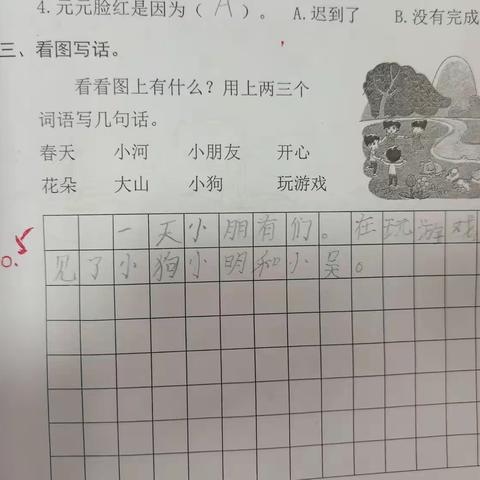 4.元元脸红是因为( A )。 A.迟到了 B.没有完成
三、看图写话。
看看图上有什么?用上两三个
词语写几句话。
春天 小河 小朋友 开心
花朵 大山 小狗 玩游戏
一天小朋有们。在玩游戏
0.5
见了小狗小明和小吴。